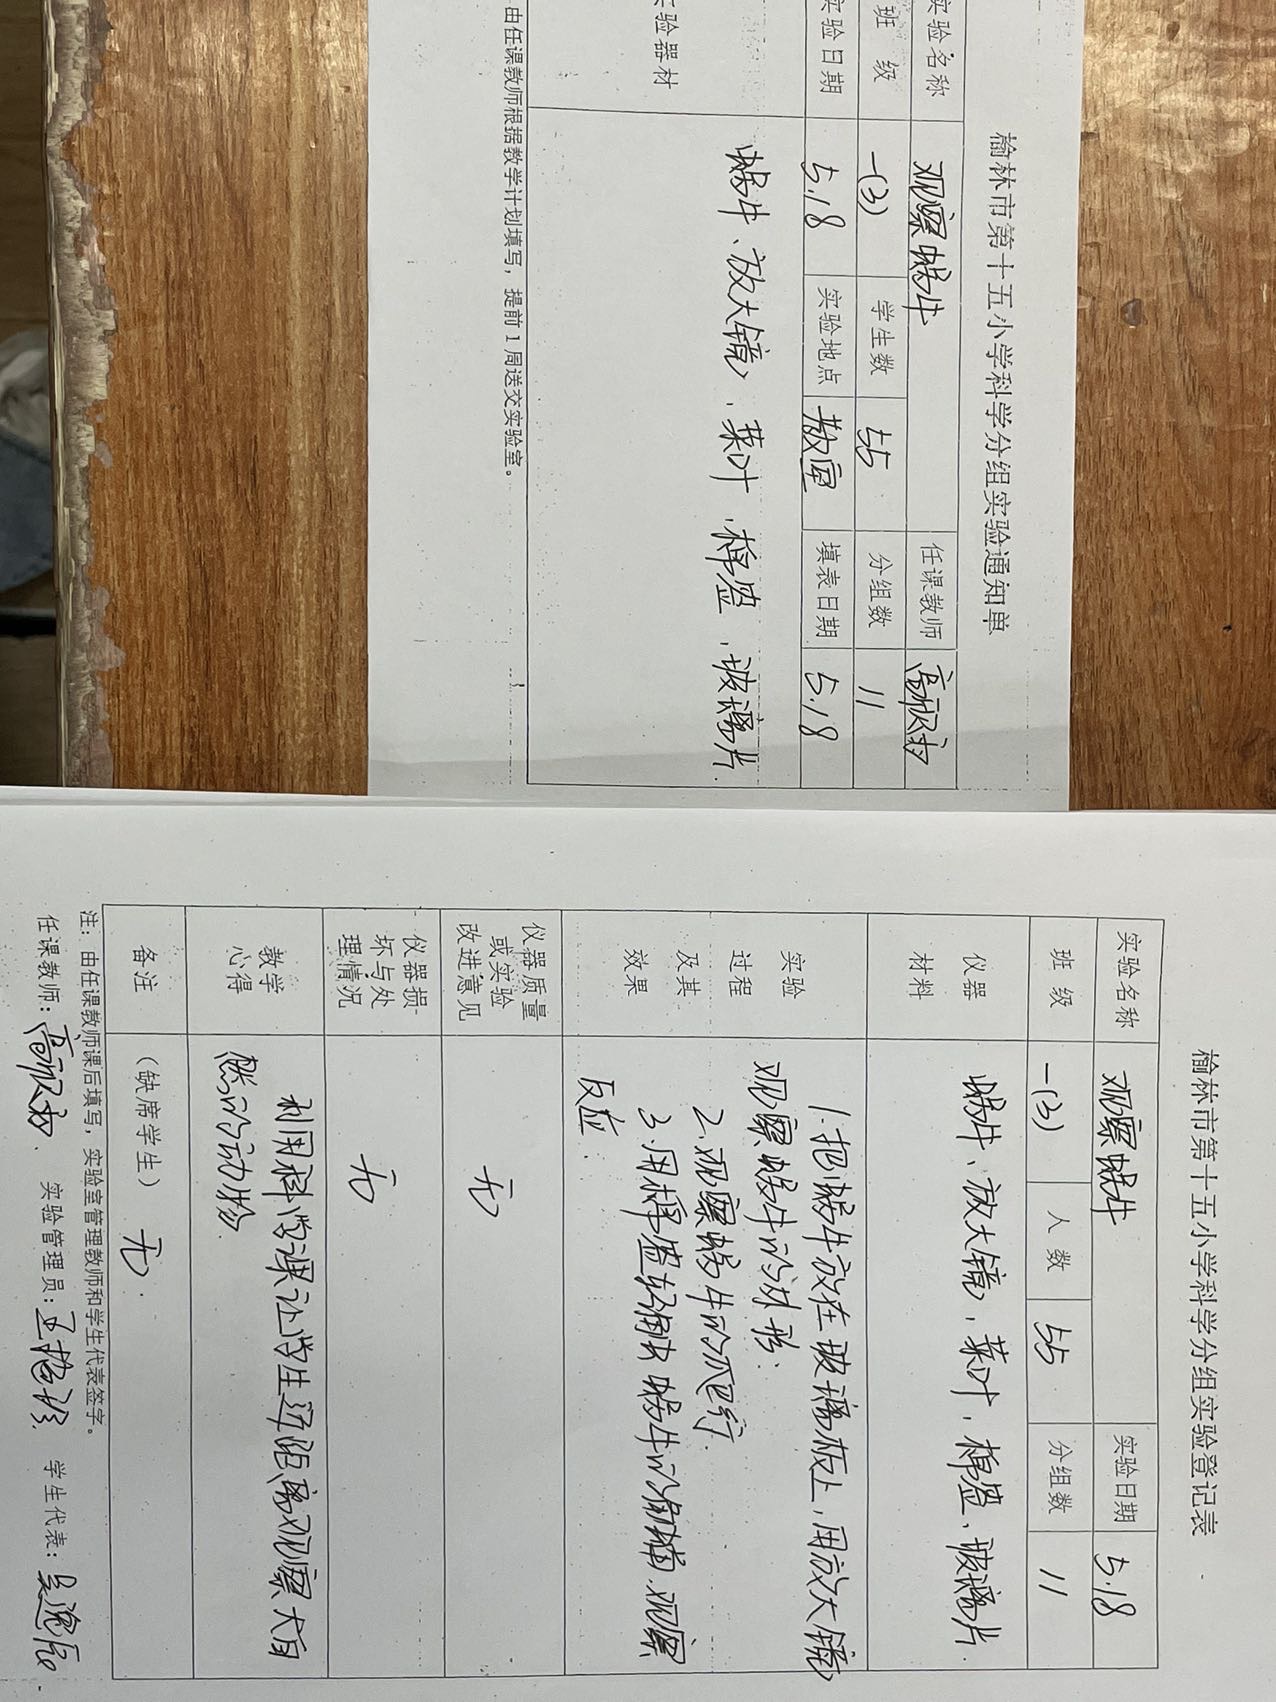 榆林市第十五小学科学分组实验通知单
实验名称 观察蜗牛 任课教师
班 级 一(3) 学生数 55 分组数 11
实验日期 5.18 实验地点 教室 填表日期 5.18
实验器材 蜗牛、放大镜、菜叶、棉签、玻璃片.
由任课教师根据教学计划填写，提前1周送交实验室。
榆林市第十五小学科学分组实验登记表
实验名称 观察蜗牛 实验日期 5.18
班 级 一(3) 人 数 55 分组数 11
仪器
材料
蜗牛、放大镜、菜叶、棉签、玻璃片.
实验
过程
及其
效果
1.把蜗牛放在玻璃板上，用放大镜
观察蜗牛的外形.
2.观察蜗牛的爬行.
3.用棉签轻触蜗牛的触角.观察
反应.
仪器质量
或实验
改进意见
无
仪器损
坏与处
理情况
无
教学
心得
利用科学课让学生近距离观察大自
然的动物.
备注 （缺席学生） 无.
注：由任课教师课后填写，实验室管理教师和学生代表签字。
任课教师： 实验管理员： 学生代表：